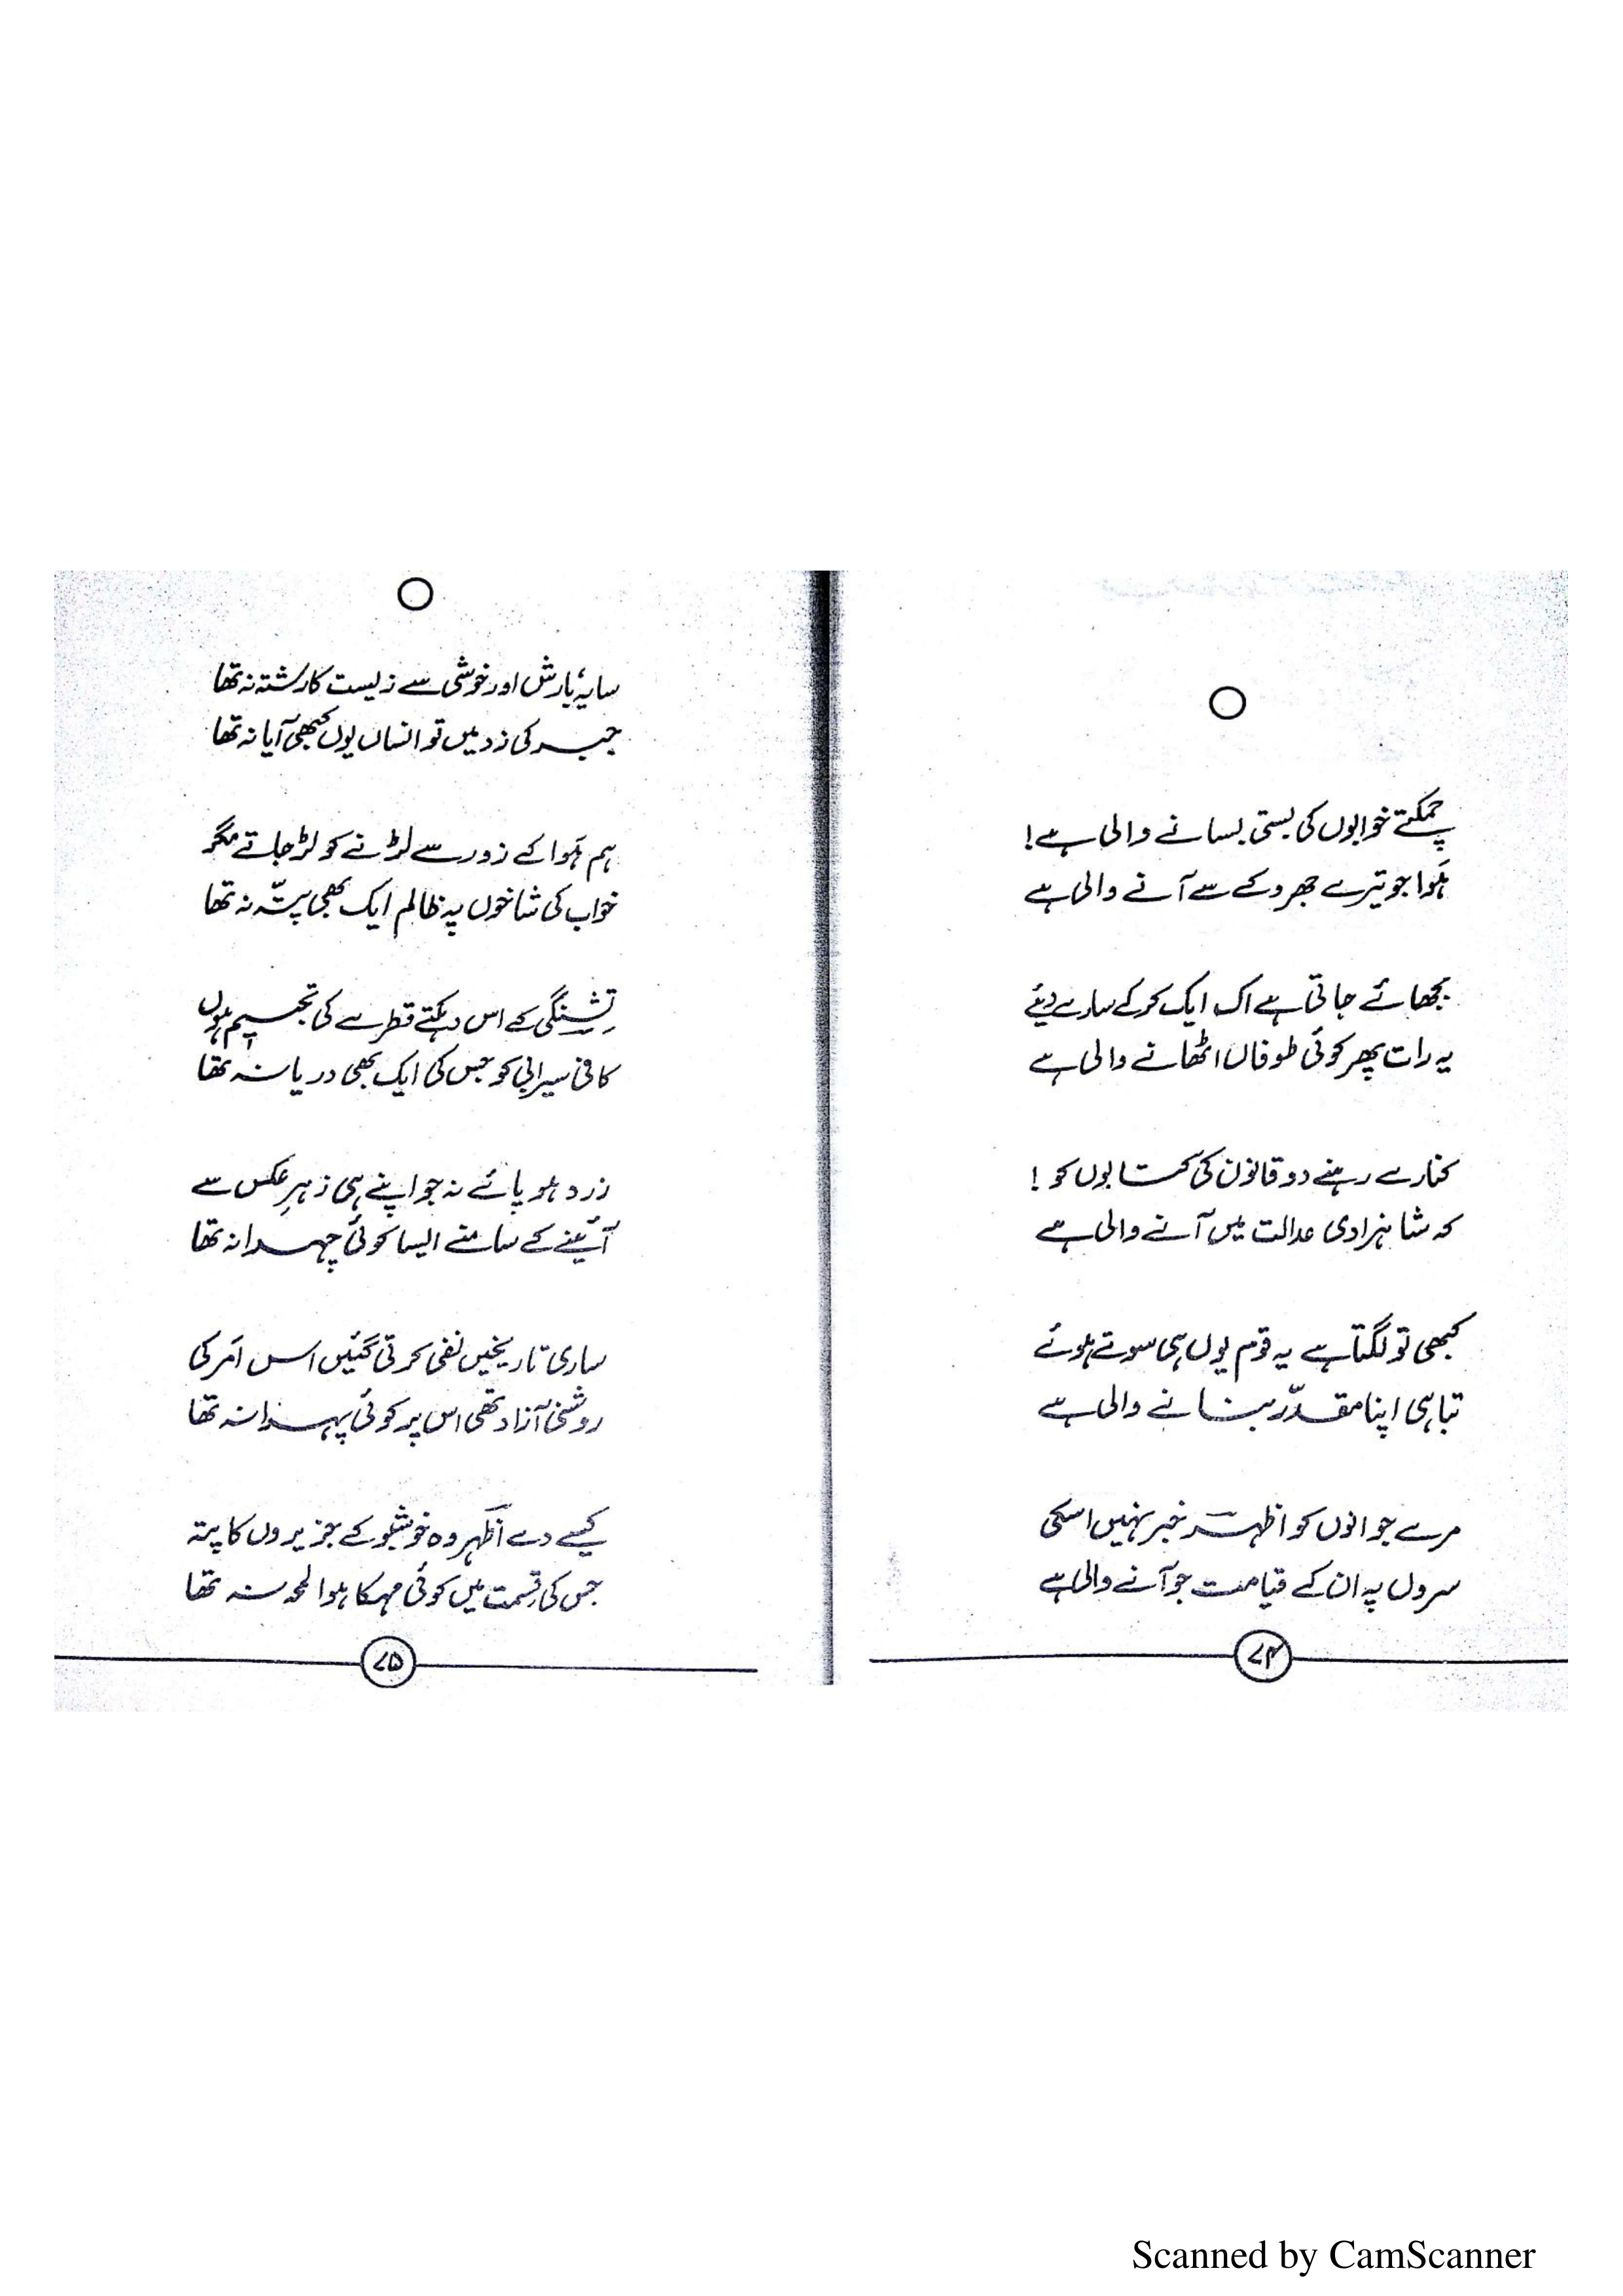 چمکتے خوابوں کی بستی بسانے والی ہے!
ہَوا جو تیرے جھروکے سے آنے والی ہے
بجھائے جاتی ہے اک ایک کرکے سارے دیئے
یہ رات پھر کوئی طوفاں اٹھانے والی ہے
کنارے رہنے دو قانون کی کتابوں کو !
کہ شاہزادی عدالت میں آنے والی ہے
کبھی تو لگتا ہے یہ قوم یوں ہی سوتے ہوئے
تباہی اپنا مقدّر بنانے والی ہے
مرے جوانوں کو اظہر خبر نہیں اسکی
سروں پہ ان کے قیامت جو آنے والی ہے
۷۴
سایۂ بارش اور خوشی سے زیست کا رشتہ نہ تھا
جبر کی زد میں تو انساں یوں کبھی آیا نہ تھا
ہم ہَوا کے زور سے لڑنے کو لڑ جاتے مگر
خواب کی شاخوں پہ ظالم ایک بھی پتّہ نہ تھا
تِشنگی کے اس دہکتے قطرے کی تجسیم ہوں
کافی سیرابی کو جس کی ایک بھی دریا نہ تھا
زرد ہو پائے نہ جو اپنے ہی زہرِ عکس سے
آئینے کے سامنے ایسا کوئی چہرا نہ تھا
ساری تاریخیں نفی کرتی گئیں اس اَمر کی
روشنی آزاد تھی اس پر کوئی پہرا نہ تھا
کیسے دے اَظہر وہ خوشبو کے جزیروں کا پتہ
جس کی قِسمت میں کوئی مہکا ہوا لمحہ نہ تھا
۷۵
Scanned by CamScanner